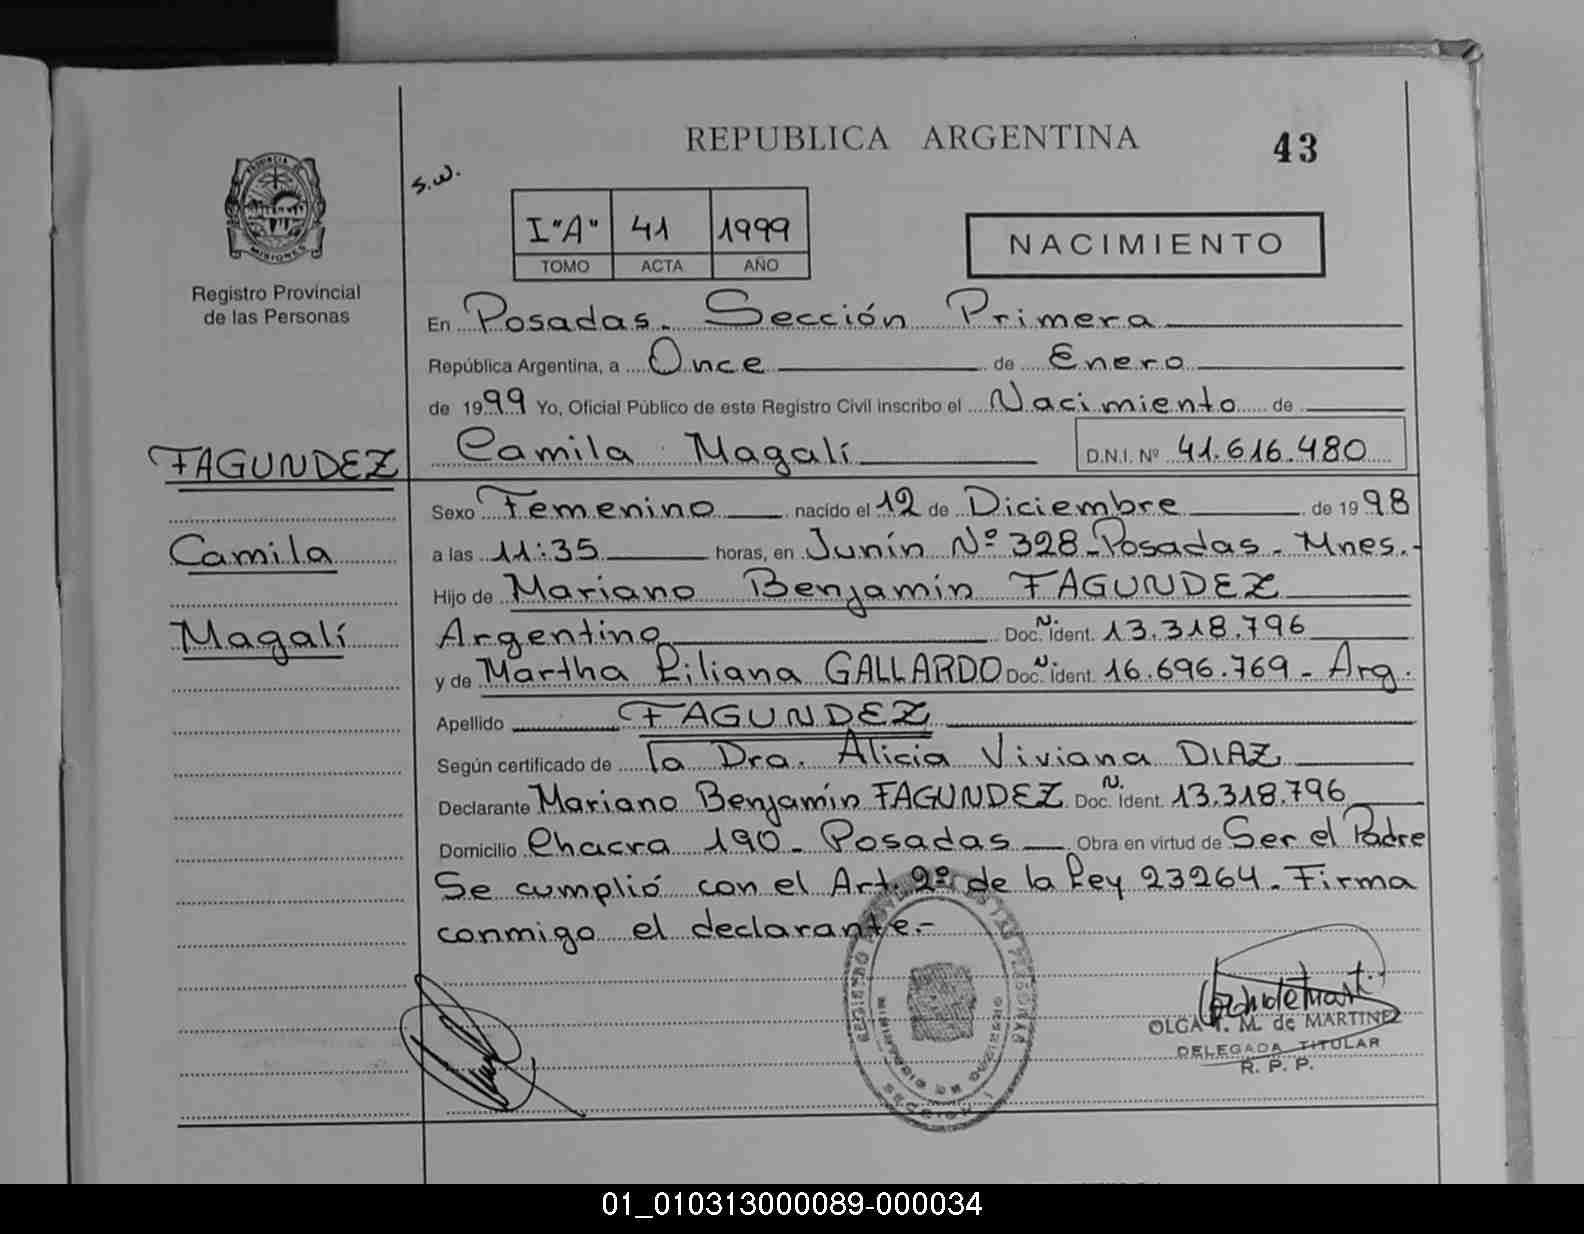 REPUBLICA ARGENTINA
43
s.w.
PROVINCIA DE
MISIONES
Registro Provincial
de las Personas
I "A" 41 1999
TOMO ACTA AÑO
NACIMIENTO
En Posadas. Sección Primera
República Argentina, a Once de Enero
de 1999 Yo, Oficial Público de este Registro Civil inscribo el Nacimiento de
Camila Magalí D.N.I. Nº 41.616.480
FAGUNDEZ
Camila
Magalí
Sexo Femenino nacido el 12 de Diciembre de 1998
a las 11:35 horas, en Junín Nº 328-Posadas- Mnes.-
Hijo de Mariano Benjamín FAGUNDEZ
Argentino Doc. N. Ident. 13.318.796
y de Martha Liliana GALLARDO Doc. N. Ident. 16.696.769 - Arg.
Apellido FAGUNDEZ
Según certificado de la Dra. Alicia Viviana DIAZ
Declarante Mariano Benjamín FAGUNDEZ Doc. N. Ident. 13.318.796
Domicilio Chacra 190 - Posadas Obra en virtud de Ser el Padre
Se cumplió con el Art. 2º de la Ley 23264. Firma
conmigo el declarante.-
OLGA M. de MARTINEZ
DELEGADA TITULAR
R. P. P.
01_010313000089-000034